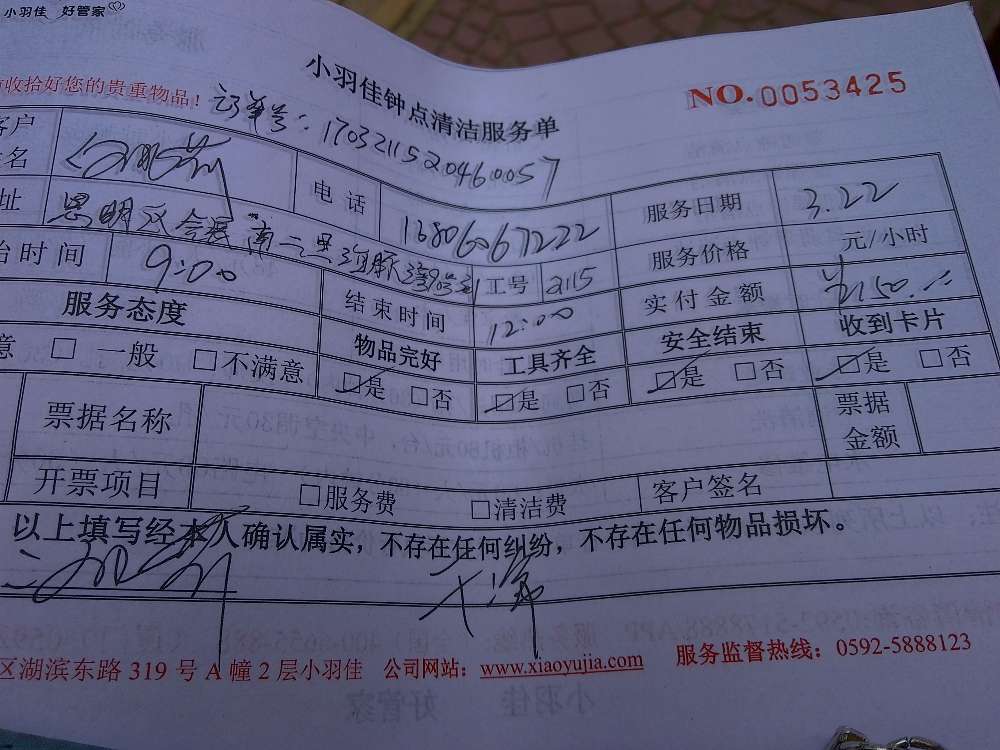 小羽佳 好管家
收拾好您的贵重物品！
小羽佳钟点清洁服务单
NO.0053425
订单号：17032115204600057
客户
名
电话
13806067222
服务日期
3.22
址
思明区会展南二里
工号
2115
服务价格
元/小时
时间
9:00
结束时间
12:00
实付金额
¥150.
服务态度
物品完好
工具齐全
安全结束
收到卡片
意 □ 一般 □不满意
□是 □否
□是 □否
□是 □否
□是 □否
票据名称
票据金额
开票项目
□服务费 □清洁费
客户签名
以上填写经本人确认属实，不存在任何纠纷，不存在任何物品损坏。
区湖滨东路 319 号 A 幢 2 层小羽佳 公司网站：www.xiaoyujia.com 服务监督热线：0592-5888123